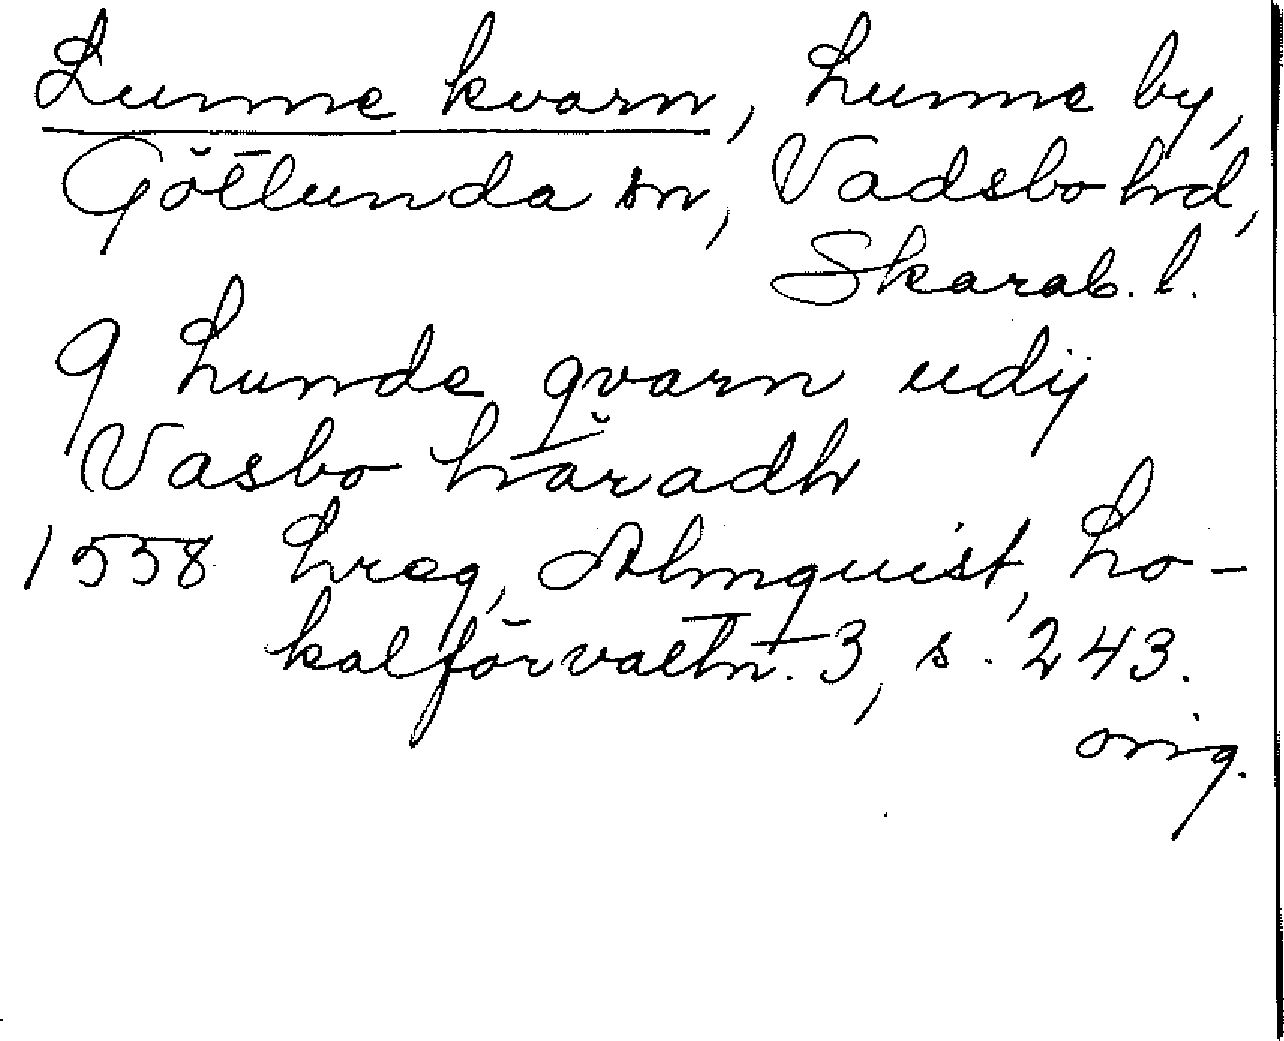 Lunne kvarn, Lunne by,
Götlunda sn, Vadsbo hd,
Skarab. l.
9 Lunde qvarn udij
Vasbo häradh
1558 hreg, Almquist, Lo-
kalförvaltn. 3, s. 243.
orig.